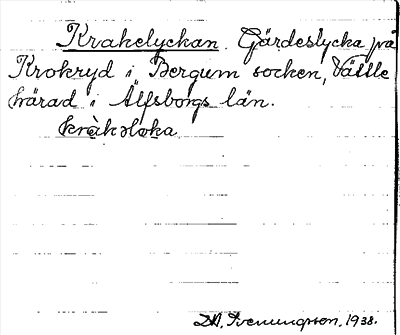 Krakelyckan. Gärdeslycka på
Krokryd i Bergum socken, Vättle
härad i Älfsborgs län.
Svenungsson, 1938.